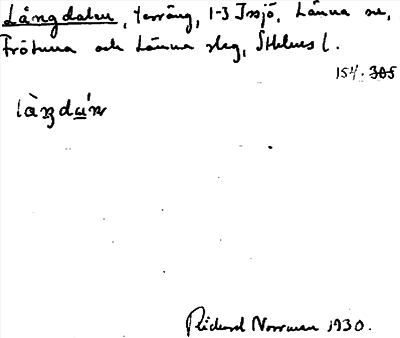 Långdalen, terräng, 1-3 Insjö, Länna sn,
Frötuna och Länna slg, Sthlms l.
154. 305
làŋdá̱n
Rickard Norrman 1930.